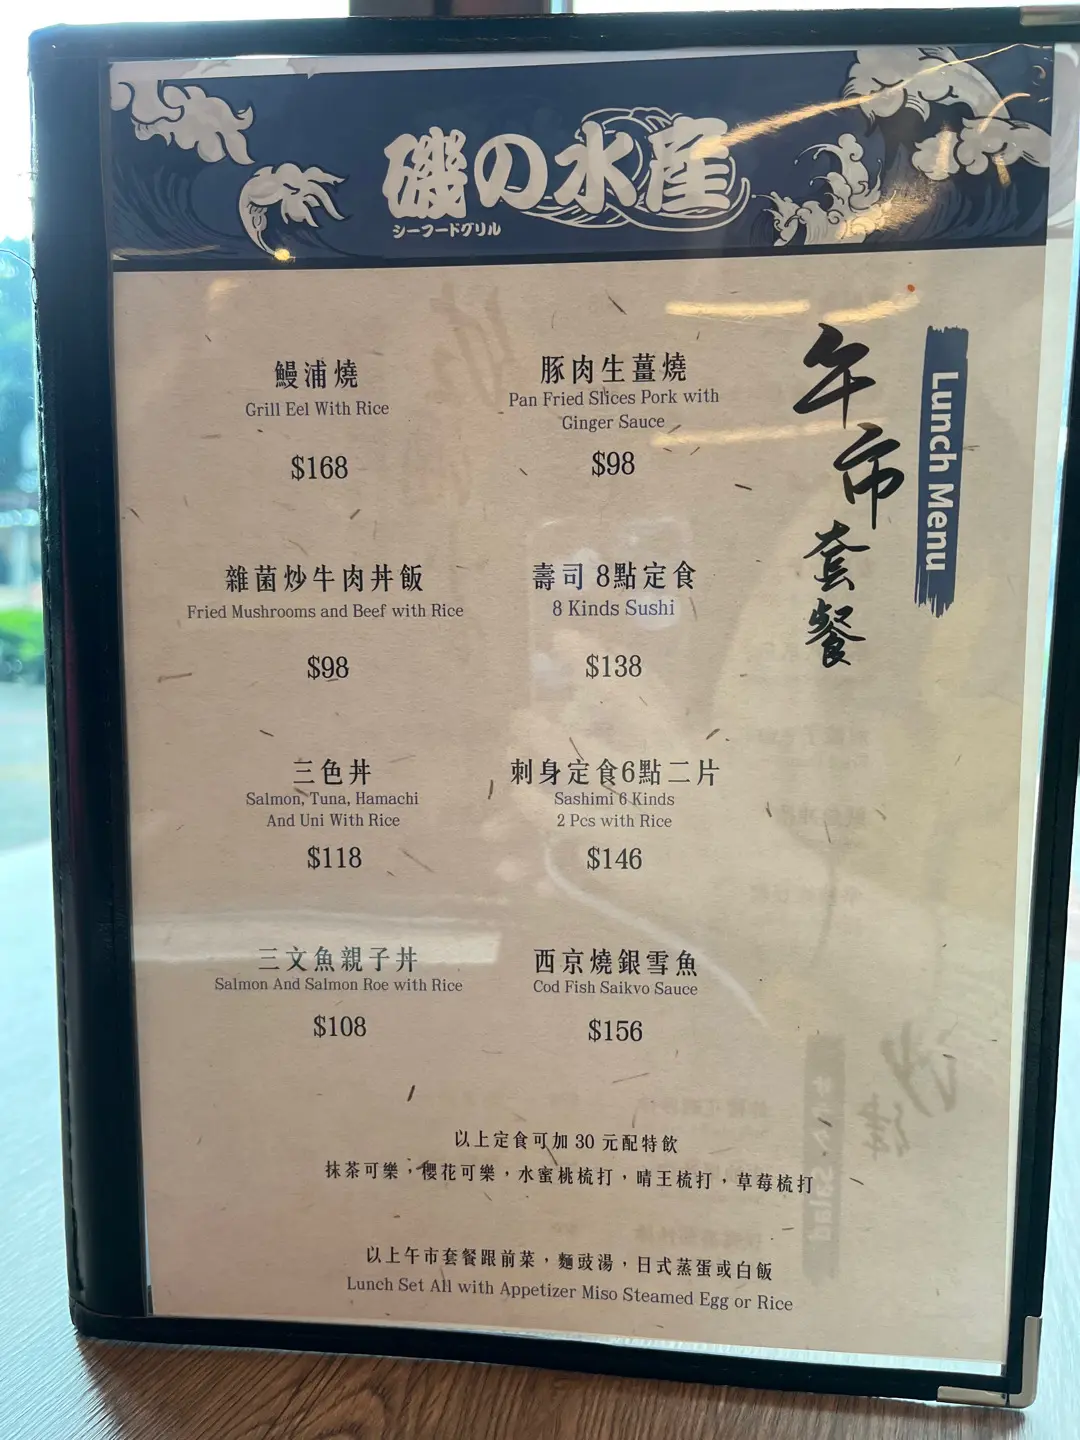 磯の水産
シーフードグリル
午市套餐
Lunch Menu
鰻浦燒
Grill Eel With Rice
$168
豚肉生薑燒
Pan Fried Slices Pork with
Ginger Sauce
$98
雜菌炒牛肉丼飯
Fried Mushrooms and Beef with Rice
$98
壽司 8點定食
8 Kinds Sushi
$138
三色丼
Salmon, Tuna, Hamachi
And Uni With Rice
$118
刺身定食6點二片
Sashimi 6 Kinds
2 Pcs with Rice
$146
三文魚親子丼
Salmon And Salmon Roe with Rice
$108
西京燒銀雪魚
Cod Fish Saikvo Sauce
$156
以上定食可加 30 元配特飲
抹茶可樂，櫻花可樂，水蜜桃梳打，晴王梳打，草莓梳打
以上午市套餐跟前菜，麵豉湯，日式蒸蛋或白飯
Lunch Set All with Appetizer Miso Steamed Egg or Rice